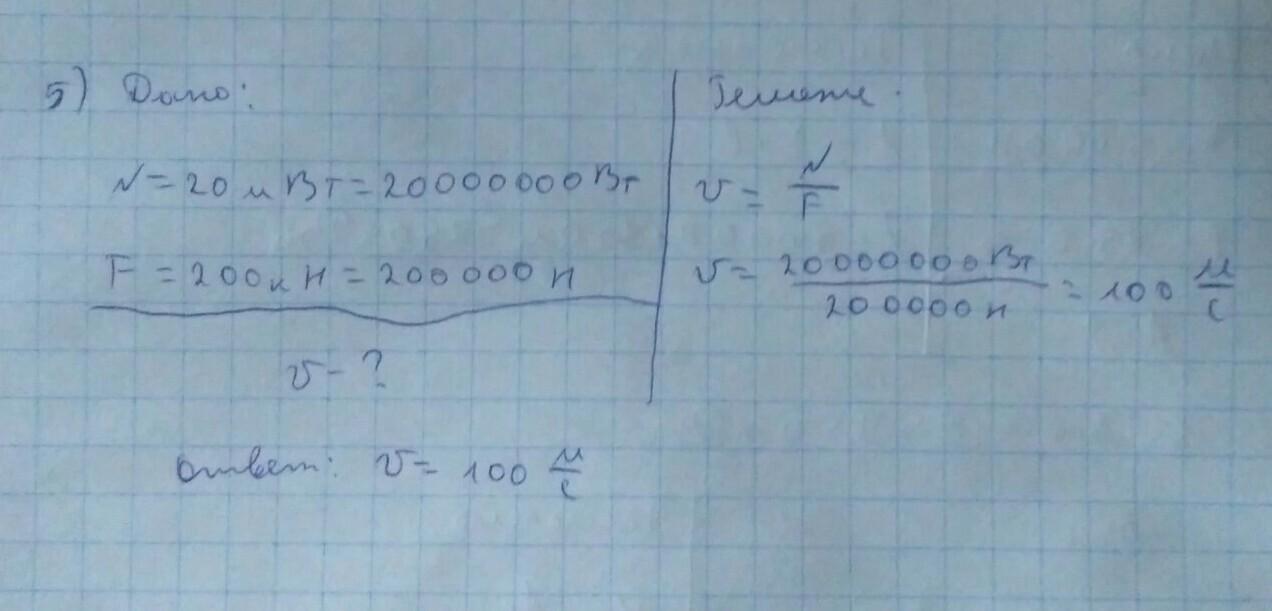 5) Дано:
N = 20 мВт = 20000000 Вт
F = 200 кН = 200000 Н
v - ?
Решение:
v = N/F
v = 20000000 Вт / 200000 Н = 100 м/с
Ответ: v = 100 м/с